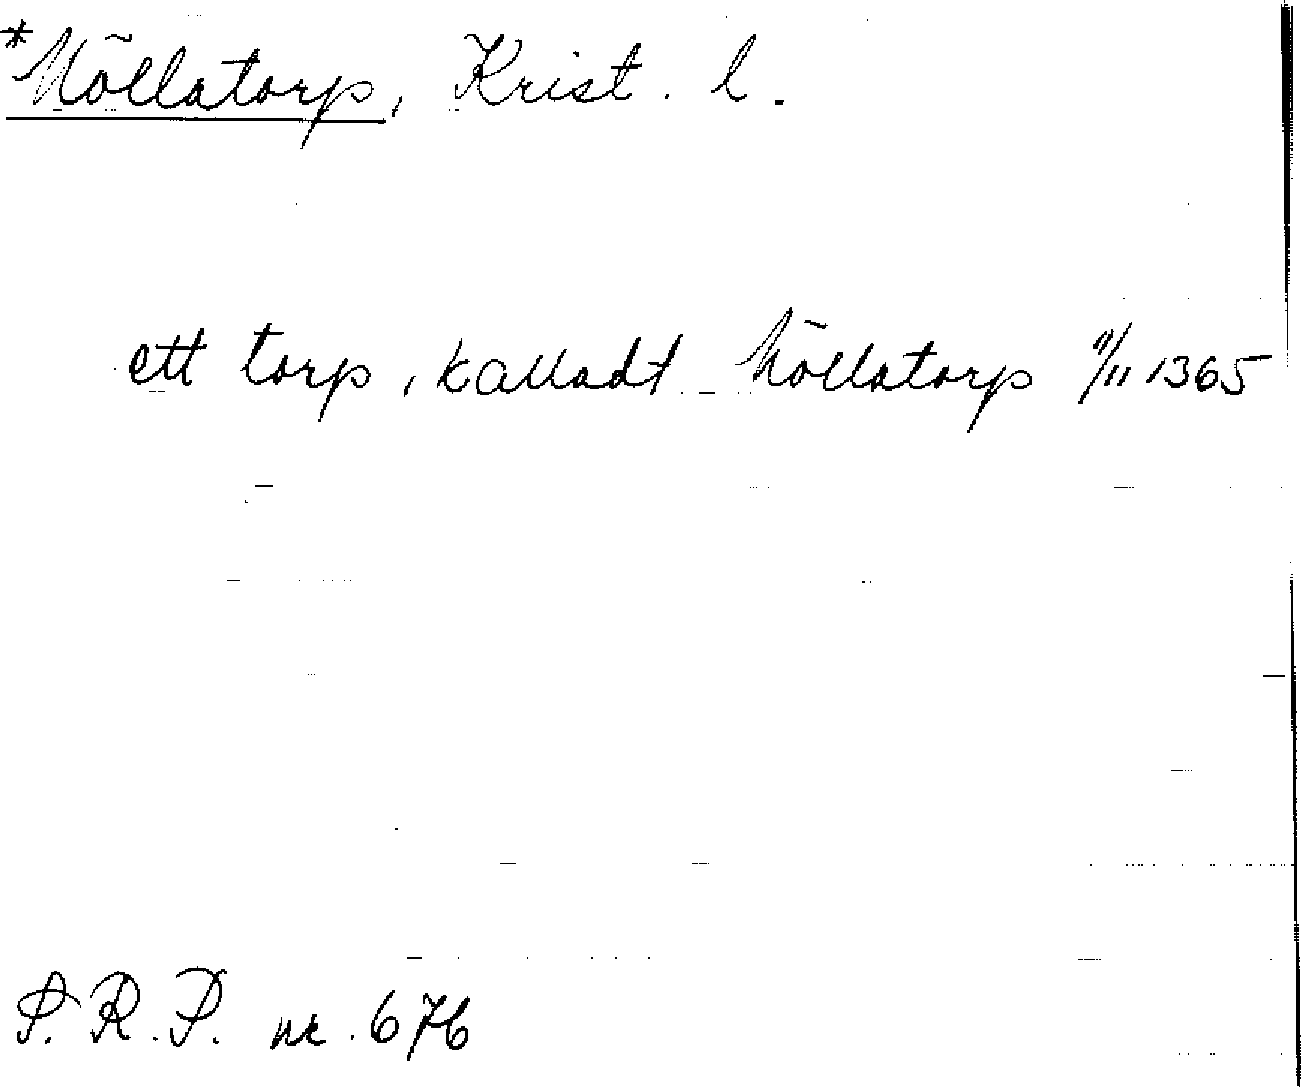 *Möllatorp, Krist. l.
ett torp, kalladt Möllatorp 11/11 1365
S.R.P. nr. 676